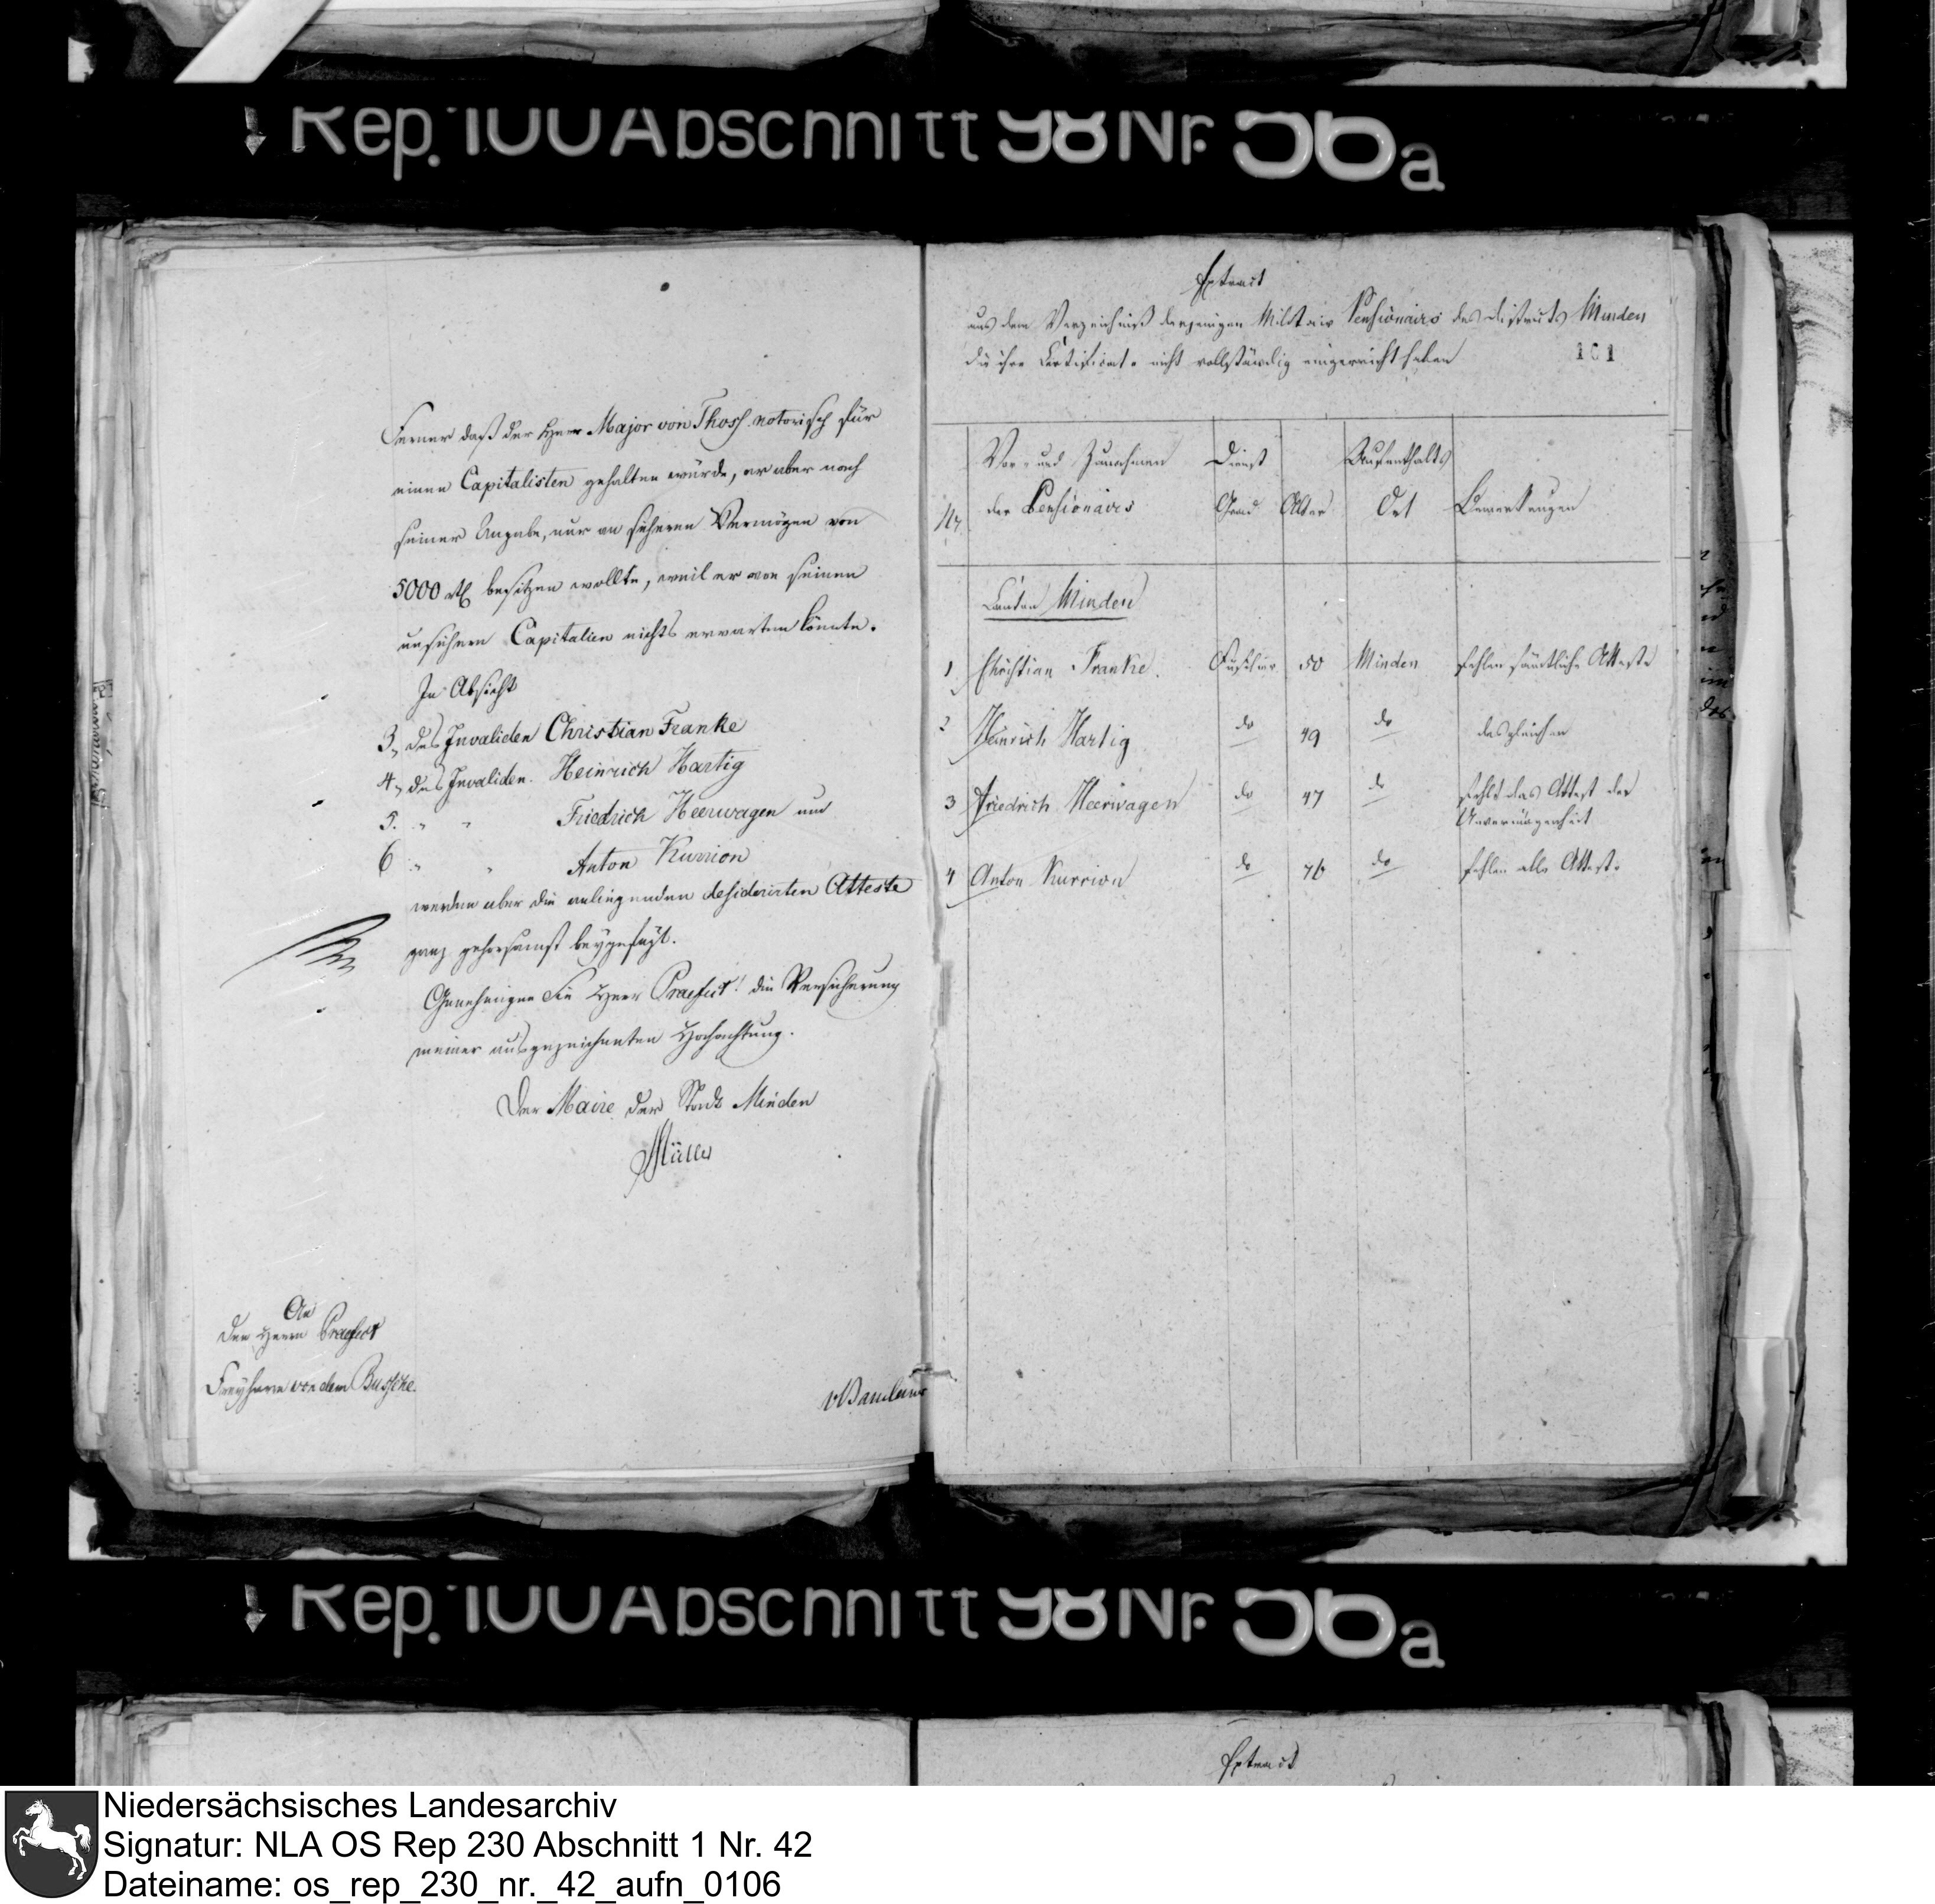 Rep. 100 Abschnitt 98 Nr. 56a
Ferner daß der Herr Major von Thoss notorisch für
einen Capitalisten gehalten würde, er aber nach
seiner Angabe, nur an sicheren Vermögen von
5000 rtl besitzen wollte, weil er von seinen
unsichern Capitalien nichts erwarten könnte.
In Absicht
3, des Invaliden Christian Franke
4, des Invaliden Heinrich Hartig
5. " " Friedrich Heerwagen und
6 " " Anton Kurrion
werden aber die anliegenden desiderirten Atteste
ganz gehorsamst beygefügt.
Genehmigen Sie Herr Praefect! die Versicherung
meiner ausgezeichneten Hochachtung.
Der Maire der Stadt Minden
Müller
An
den Herrn Praefect
Freyherrn von dem Bussche.
Extract
aus dem Verzeichniß derjenigen Militair Pensionairs des Districts Minden
die ihre Certificate nicht vollständig eingereicht haben
101
Nr. Vor- und Zunahmen der Pensionairs Dienst Grad Alter Aufenthalts Ort Bemerkungen
Canton Minden
1 Christian Franke. Füsilier 50 Minden fehlen sämtliche Atteste
2 Heinrich Hartig do 49 do desgleichen
3 Friedrich Heerwagen do 47 do fehlt das Attest der
Unvermögenheit
4 Anton Kurrion do 76 do fehlen alle Atteste
Rep. 100 Abschnitt 98 Nr. 56a
Extract
Niedersächsisches Landesarchiv
Signatur: NLA OS Rep 230 Abschnitt 1 Nr. 42
Dateiname: os_rep_230_nr._42_aufn_0106